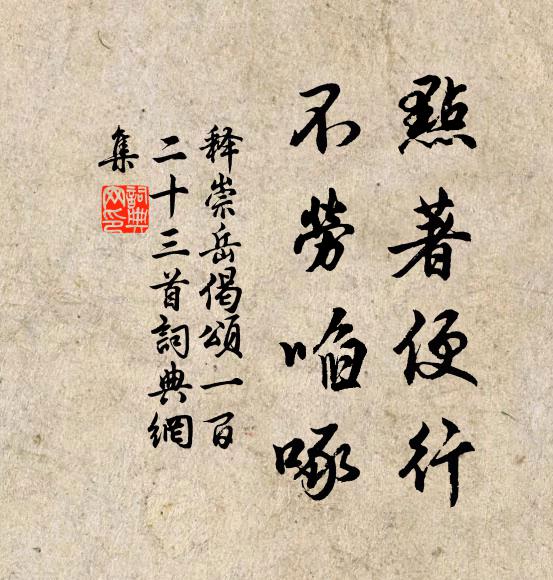 點著便行
不勞啗啄
釋崇岳偈頌一百
二十三首詞典網
集
詞典网印